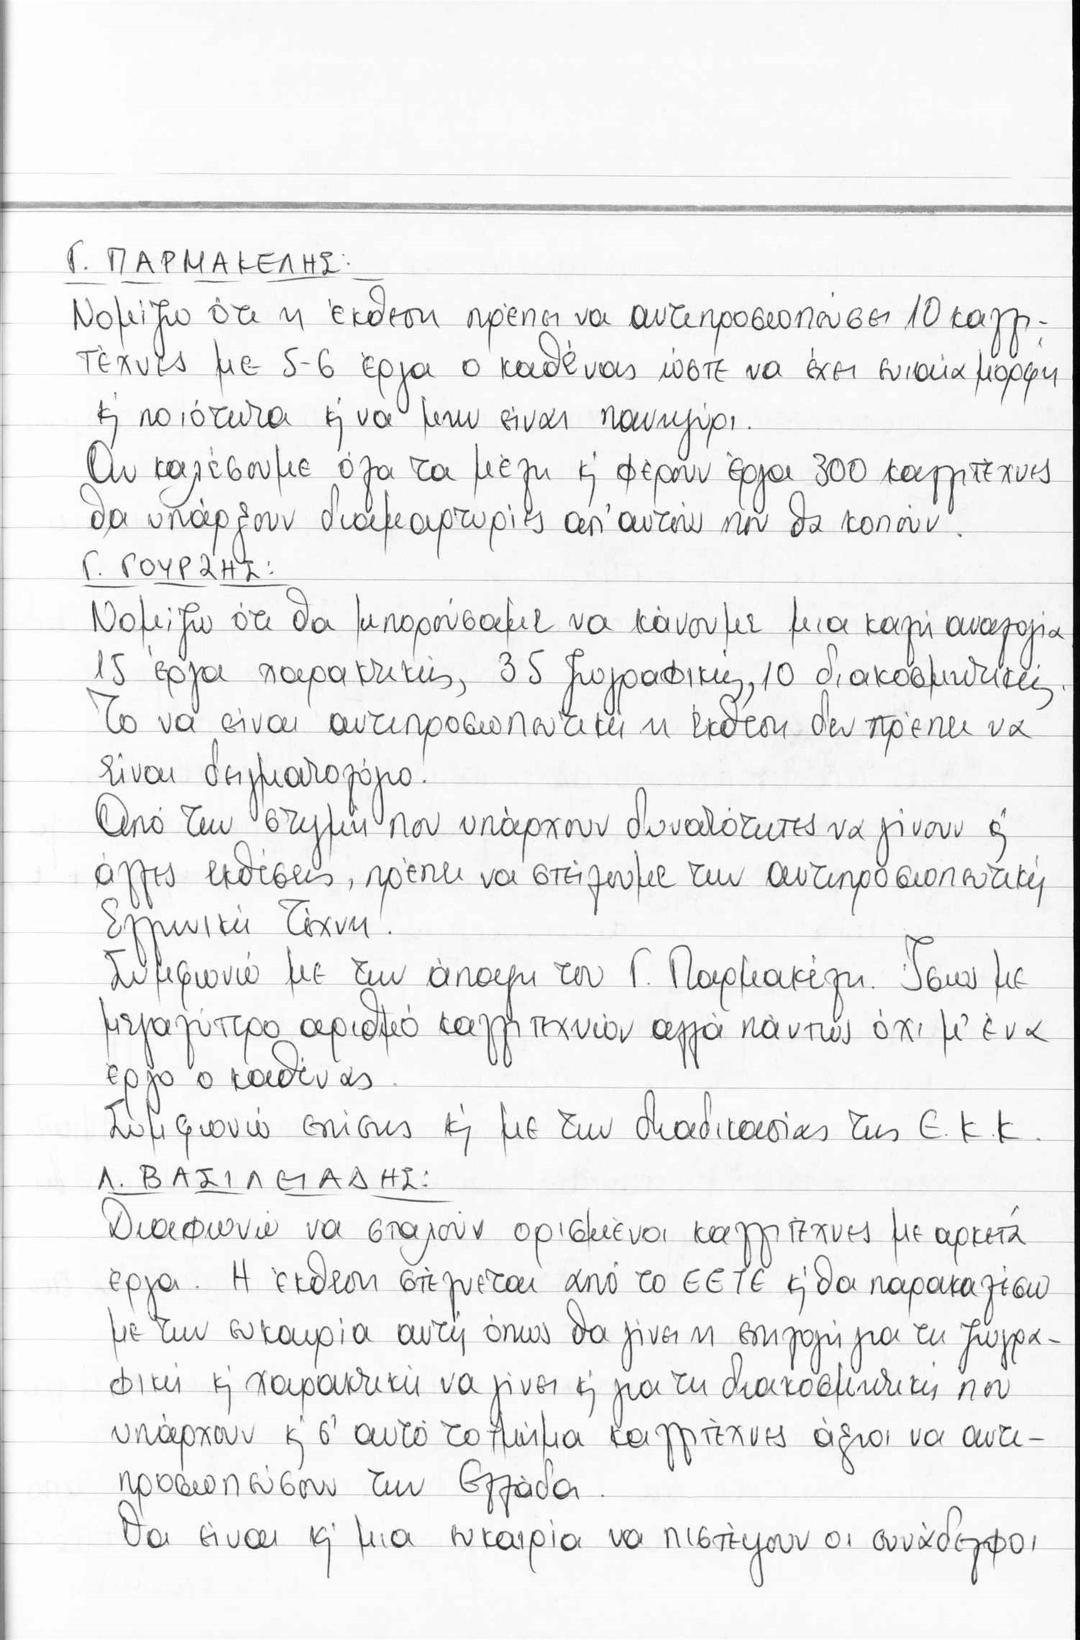 Γ. ΠΑΡΜΑΚΕΛΗΣ:
Νομίζω ότι η έκθεση πρέπει να αντιπροσωπεύσει 10 καλλι-
τέχνες με 5-6 έργα ο καθένας ώστε να έχει ενιαία μορφή
κ' ποιότητα κ' να μην είναι πανηγύρι.
Αν καλέσουμε όλα τα μέλη κ' φέρουν έργα 300 καλλιτέχνες
θα υπάρξουν διαμαρτυρίες απ' αυτούς που θα κοπούν.
Γ. ΓΟΥΡΖΗΣ:
Νομίζω ότι θα μπορούσαμε να κάνουμε μια καλή αναλογία
15 έργα χαρακτικής, 35 ζωγραφικής, 10 διακοσμητικής.
Το να είναι αντιπροσωπευτική η έκθεση δεν πρέπει να
είναι δειγματολόγιο.
Από την στιγμή που υπάρχουν δυνατότητες να γίνουν κ'
άλλες εκθέσεις, πρέπει να στείλουμε την αντιπροσωπευτική
Ελληνική Τέχνη.
Συμφωνώ με την άποψη του Γ. Παρμακέλη. Ίσως με
μεγαλύτερο αριθμό καλλιτεχνών αλλά πάντως όχι μ' ένα
έργο ο καθένας.
Συμφωνώ επίσης κ' με την διαδικασίας της Ε.Κ.Κ.
Λ. ΒΑΣΙΛΕΙΑΔΗΣ:
Διαφωνώ να σταλούν ορισμένοι καλλιτέχνες με αρκετά
έργα. Η έκθεση στέλνεται από το ΕΕΤΕ κ' θα παρακαλέσω
με την ευκαιρία αυτή όπως θα γίνει η επιλογή για τη ζωγρα-
φική κ' χαρακτική να γίνει κ' για τη διακοσμητική που
υπάρχουν κ' σ' αυτό το τμήμα καλλιτέχνες άξιοι να αντι-
προσωπεύσουν την Ελλάδα.
Θα είναι κ' μια ευκαιρία να πιστέψουν οι συνάδελφοι